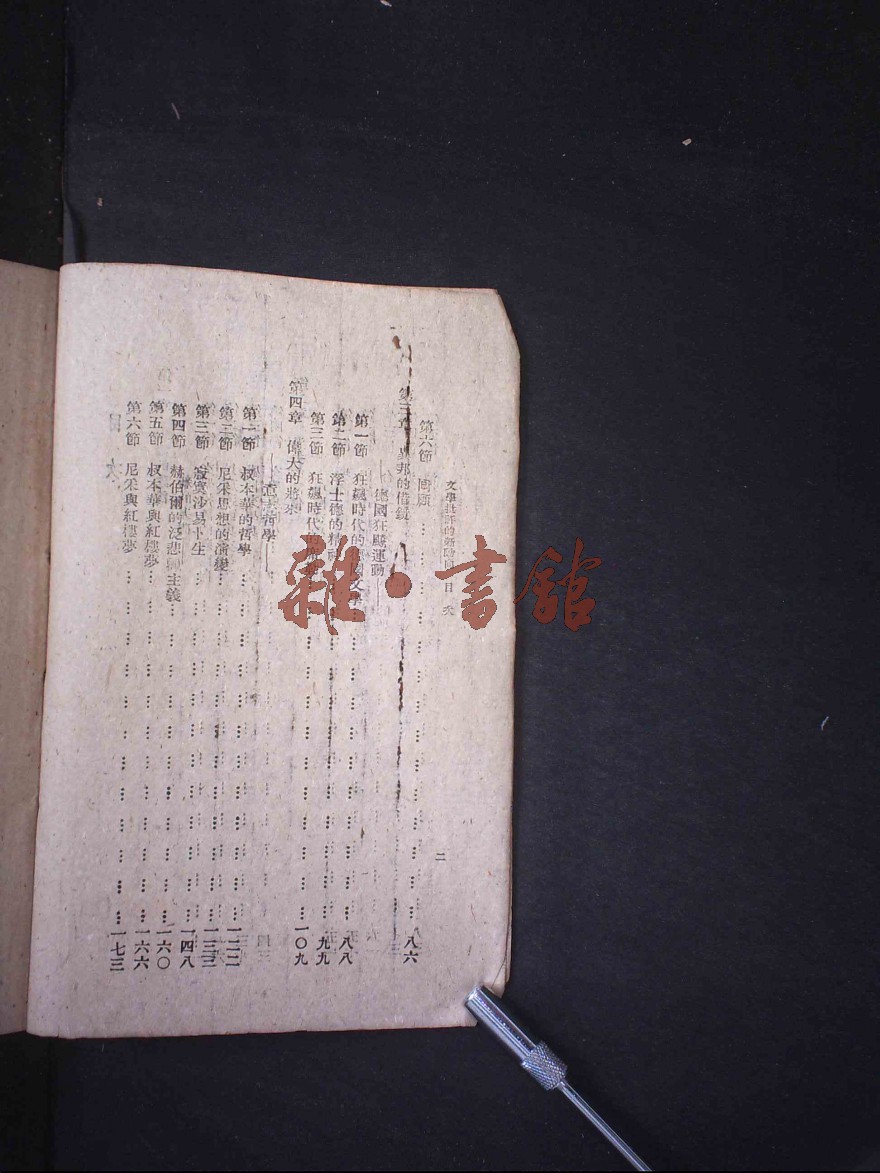 文學批評的新動向 目次
二
第六節 回顧……八六
第三章 異邦的借鏡
——德國狂飆運動
第一節 狂飆時代的德國文學……八八
第二節 浮士德的精神……九九
第三節 狂飆時代的……一〇九
第四章 偉大的將來
——意志哲學——
第一節 叔本華的哲學……一二二
第二節 尼采思想的演變……一三三
第三節 寂寞沙易卜生……一四八
第四節 赫伯爾的泛悲觀主義……一六〇
第五節 叔本華與紅樓夢……一六六
第六節 尼采與紅樓夢……一七三
雜·書館